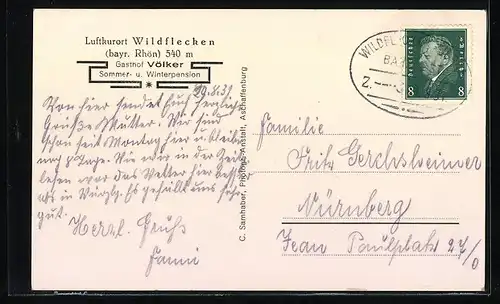 Luftkurort Wildflecken
(bayr. Rhön) 540 m
Gasthof Völker
Sommer- u. Winterpension
29.8.31.
Von hier sendet Euch herzlich
Grüße Mutter. Wir sind
schon seit Montag hier u. bleiben
noch 8 Tage. Wie wir in der Zeit
lesen war das Wetter hier besser
als in Würzbg. Es gefällt uns sehr
gut.
Herzl. Gruß
Fanni
C. Samhaber, Photogr. Anstalt, Aschaffenburg
WILDFL
BA
Z.
Deutsches Reich
8 8
Familie
Fritz Gerchsheimer
Nürnberg
Jean Paulplatz 27/0